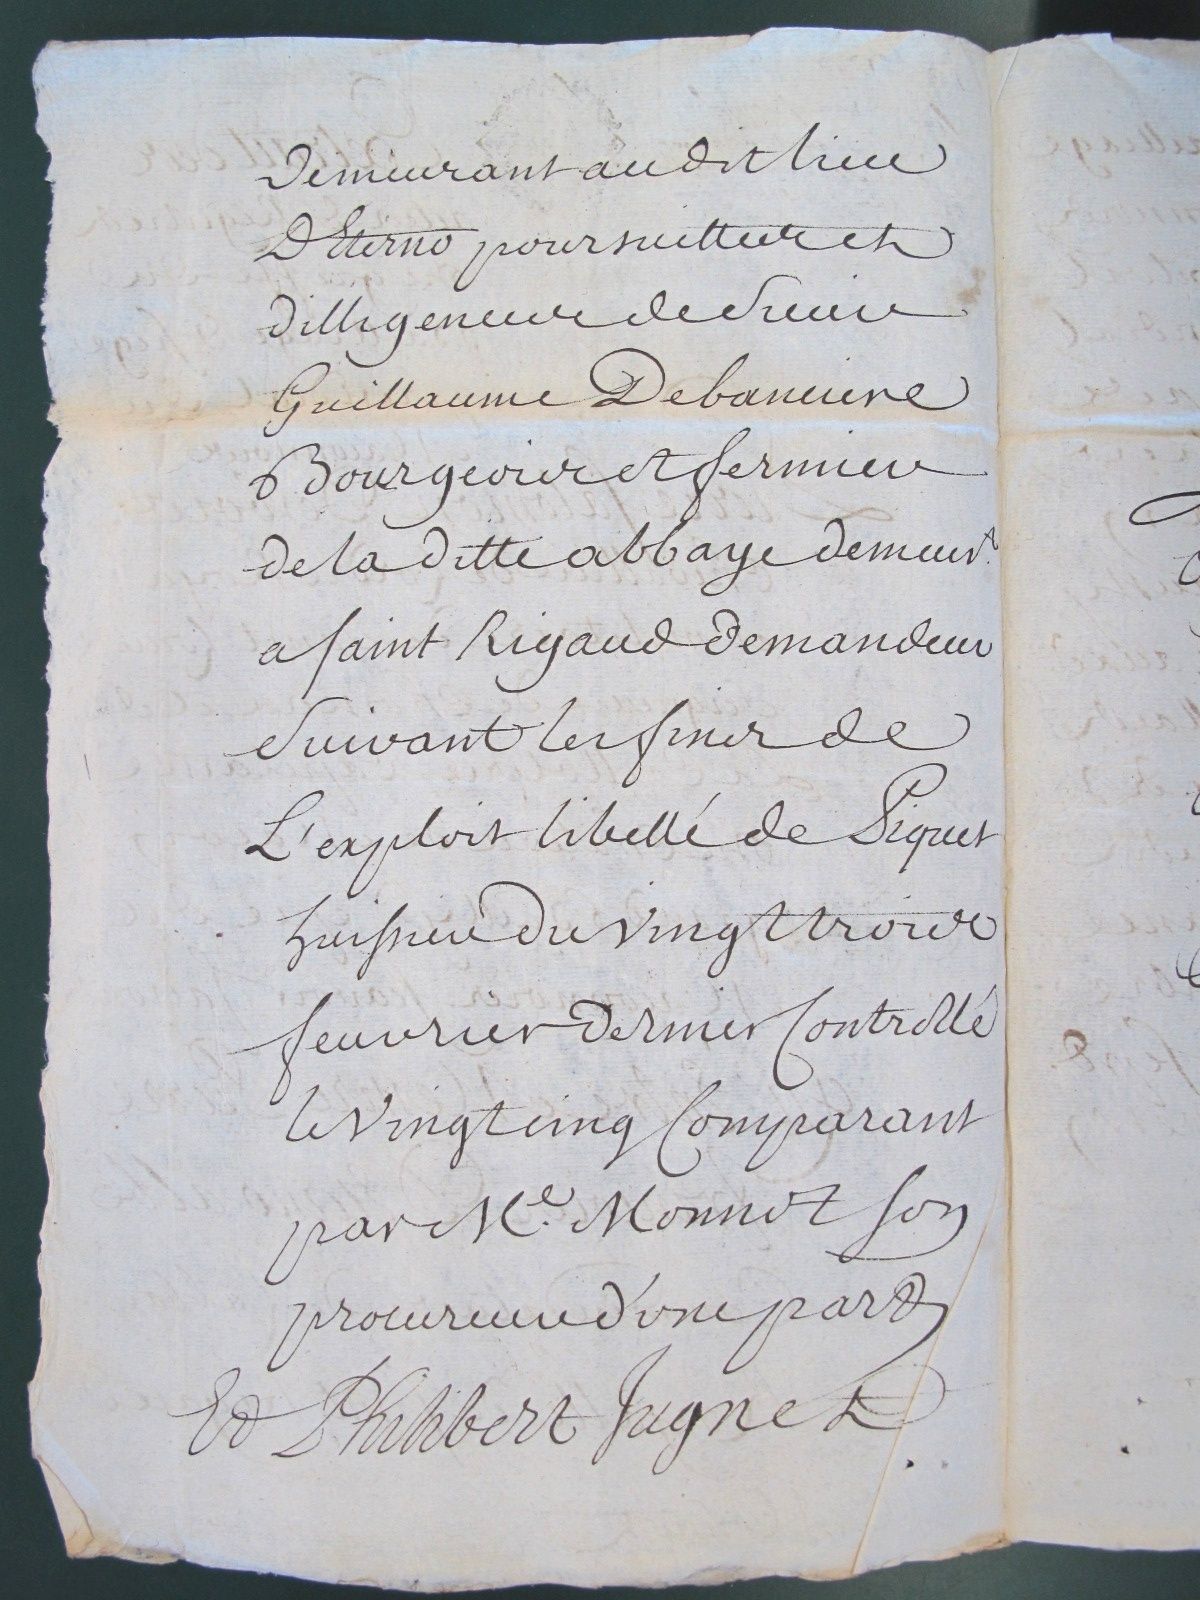 Demeurant audit lieu
D'Eterno poursuitteur et
dilligenceur de Sieur
Guillaume Debaneure
Bourgeois et fermier
de la ditte abbaye demeurt.
a saint Rigaud demandeur
suivant les fins de
L'exploit libellé de Piquet
huissier du vingt trois
feuvrier dernier Controllé
le vingt cinq Comparant
par Me. Monnot son
procureur d'une part
Et Philibert Jugnet